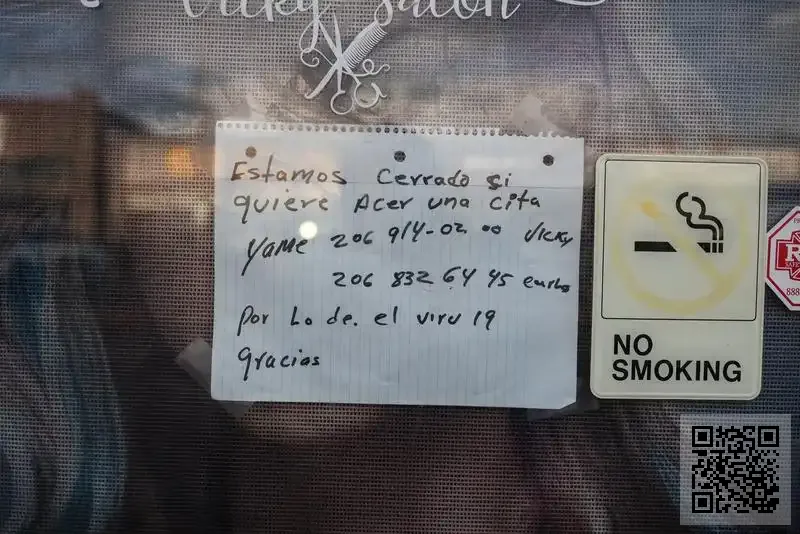 Vicky Salon
Estamos Cerrado si
quiere Acer una cita
Yame 206 914-02 00 Vicky
206 832 64 45
Por Lo de. el viru 19
gracias
NO
SMOKING
R
888